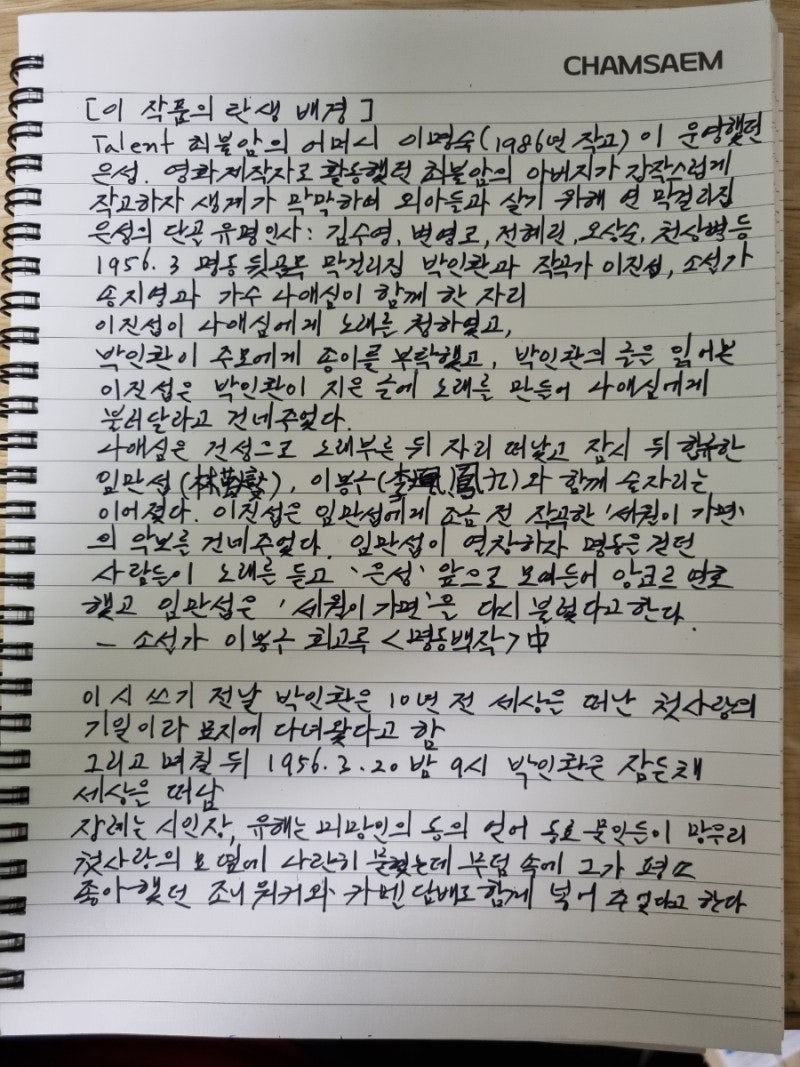 CHAMSAEM
[이 작품의 탄생 배경]
Talent 최불암의 어머니 이명숙(1986년 작고)이 운영했던
은성. 영화제작자로 활동했던 최불암의 아버지가 갑작스럽게
작고하자 생계가 막막하여 외아들과 살기 위해 연 막걸리집
은성의 단골 유명인사: 김수영, 변영로, 전혜린, 오상순, 천상병 등
1956. 3 명동 뒷골목 막걸리집 박인환과 작곡가 이진섭, 소설가
송지영과 가수 나애심이 함께 한 자리
이진섭이 나애심에게 노래를 청하였고,
박인환이 주모에게 종이를 부탁했고, 박인환의 글을 읽어본
이진섭은 박인환이 지은 글에 노래를 만들어 나애심에게
불러달라고 건네주었다.
나애심은 건성으로 노래부른 뒤 자리 떠났고 잠시 뒤 합류한
임만섭(林萬燮), 이봉구(李鳳九)와 함께 술자리는
이어졌다. 이진섭은 임만섭에게 조금 전 작곡한 '세월이 가면'
의 악보를 건네주었다. 임만섭이 열창하자 명동을 걷던
사람들이 노래를 듣고 '은성' 앞으로 모여들어 앙코르 연호
했고 임만섭은 '세월이 가면'을 다시 불렀다고 한다.
- 소설가 이봉구 회고록 <명동백작>中
이 시 쓰기 전날 박인환은 10년 전 세상을 떠난 첫사랑의
기일이라 묘지에 다녀왔다고 함
그리고 며칠 뒤 1956. 3. 20 밤 9시 박인환은 잠든채
세상을 떠남
장례는 시인장, 유해는 미망인의 동의 얻어 동료 문인들이 망우리
첫사랑의 묘 옆에 나란히 묻혔는데 무덤 속에 그가 평소
좋아했던 조니 워커와 카멘 담배도 함께 넣어 주었다고 한다